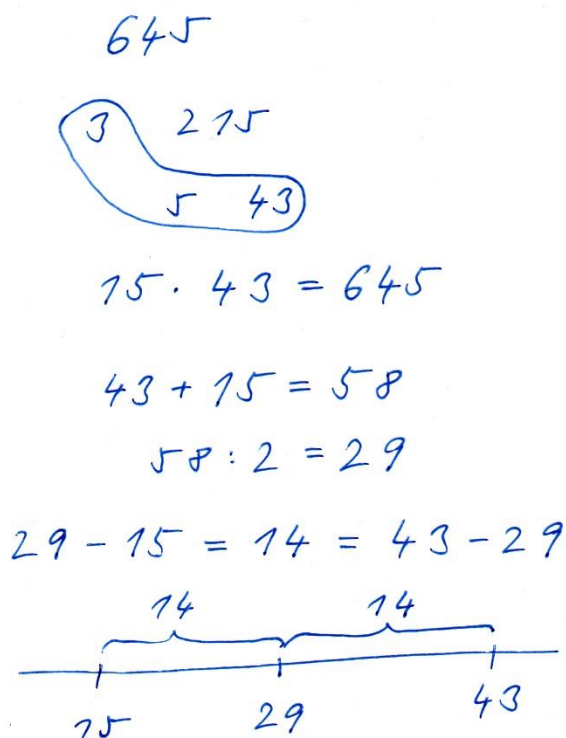 645
3 215
5 43
15 · 43 = 645
43 + 15 = 58
58 : 2 = 29
29 - 15 = 14 = 43 - 29
14 14
15 29 43